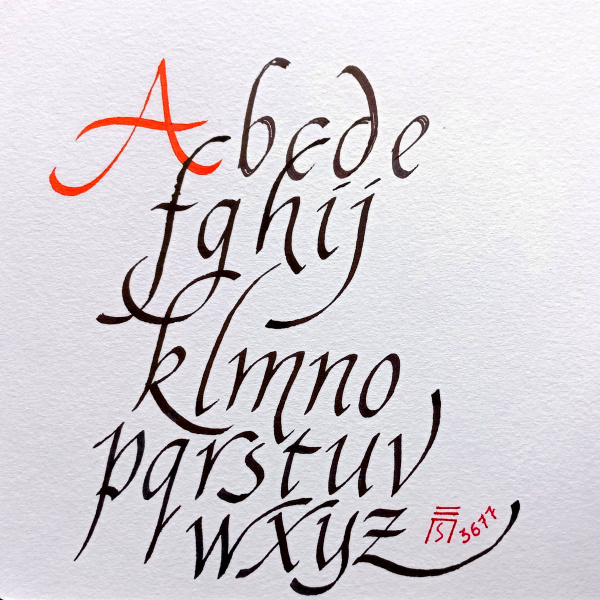 Abcde
fghij
klmno
pqrstuv
wxyz
3677